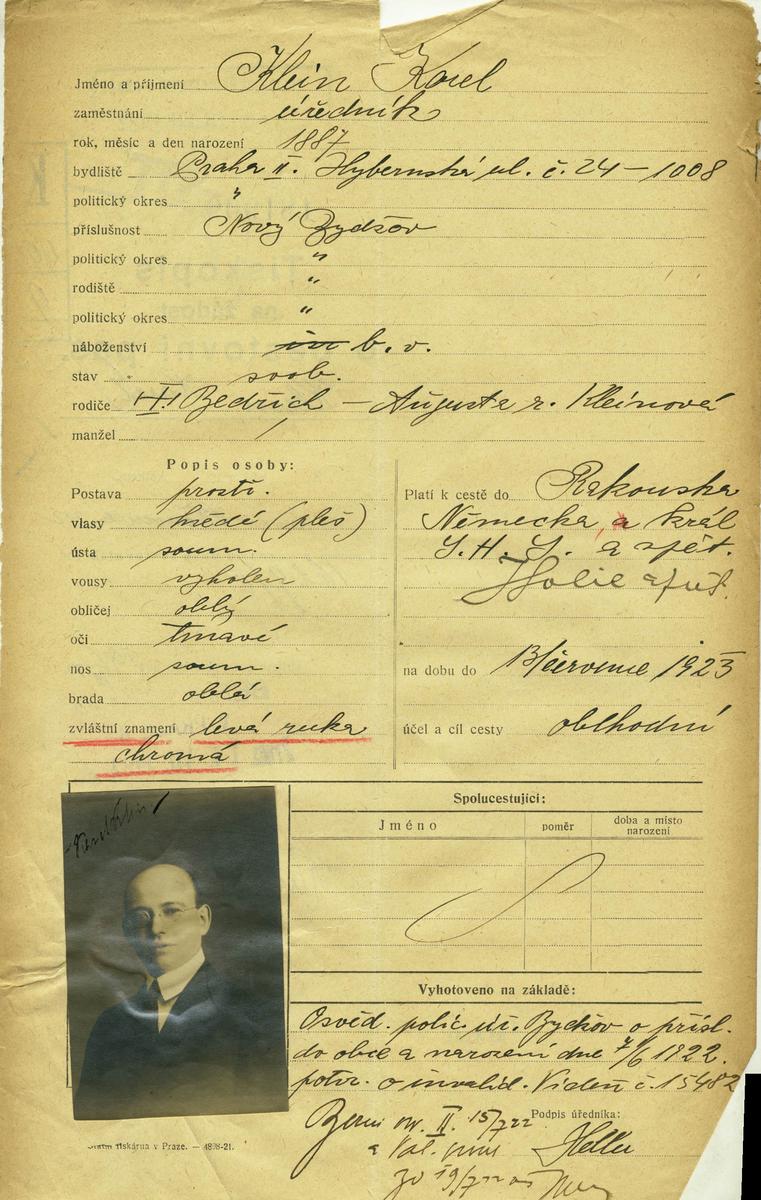 Jméno a příjmení Klein Karel
zaměstnání úředník
rok, měsíc a den narození 1887
bydliště Praha II. Hybernská ul. č. 24 – 1008
politický okres "
příslušnost Nový Bydžov
politický okres "
rodiště "
politický okres "
náboženství b. v.
stav svob.
rodiče Bedřich – Augusta r. Kleinová
manžel /
Popis osoby:
Postava prostř.
vlasy hnědé (pleš)
ústa soum.
vousy vyholen
obličej oblý
oči tmavé
nos soum.
brada oblá
zvláštní znamení levá ruka
chromá
Platí k cestě do Rakouska
Německa, a král
S. H. S. a zpět.
na dobu do 13/července 1923
účel a cíl cesty obchodní
Spolucestující:
Jméno poměr doba a místo narození
Vyhotoveno na základě:
Osvěd. polic. úř. Bydžov o přísl.
do obce a narození dne 7/6 1922.
potvr. o invalid. Vídeň č. 15482
II. 15/7 22
Podpis úředníka:
Heller
19/7 22
tiskárna v Praze. — 4898-21.